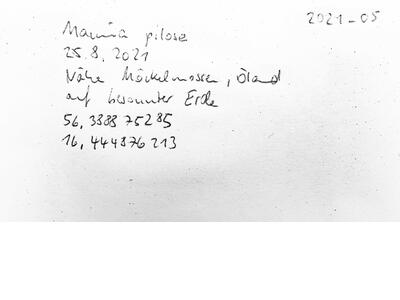 2021-05
Mannia pilosa
25.8.2021
Nähe Möckelmossen, Öland
auf besonnter Erde
56,3388875285
16,444876213